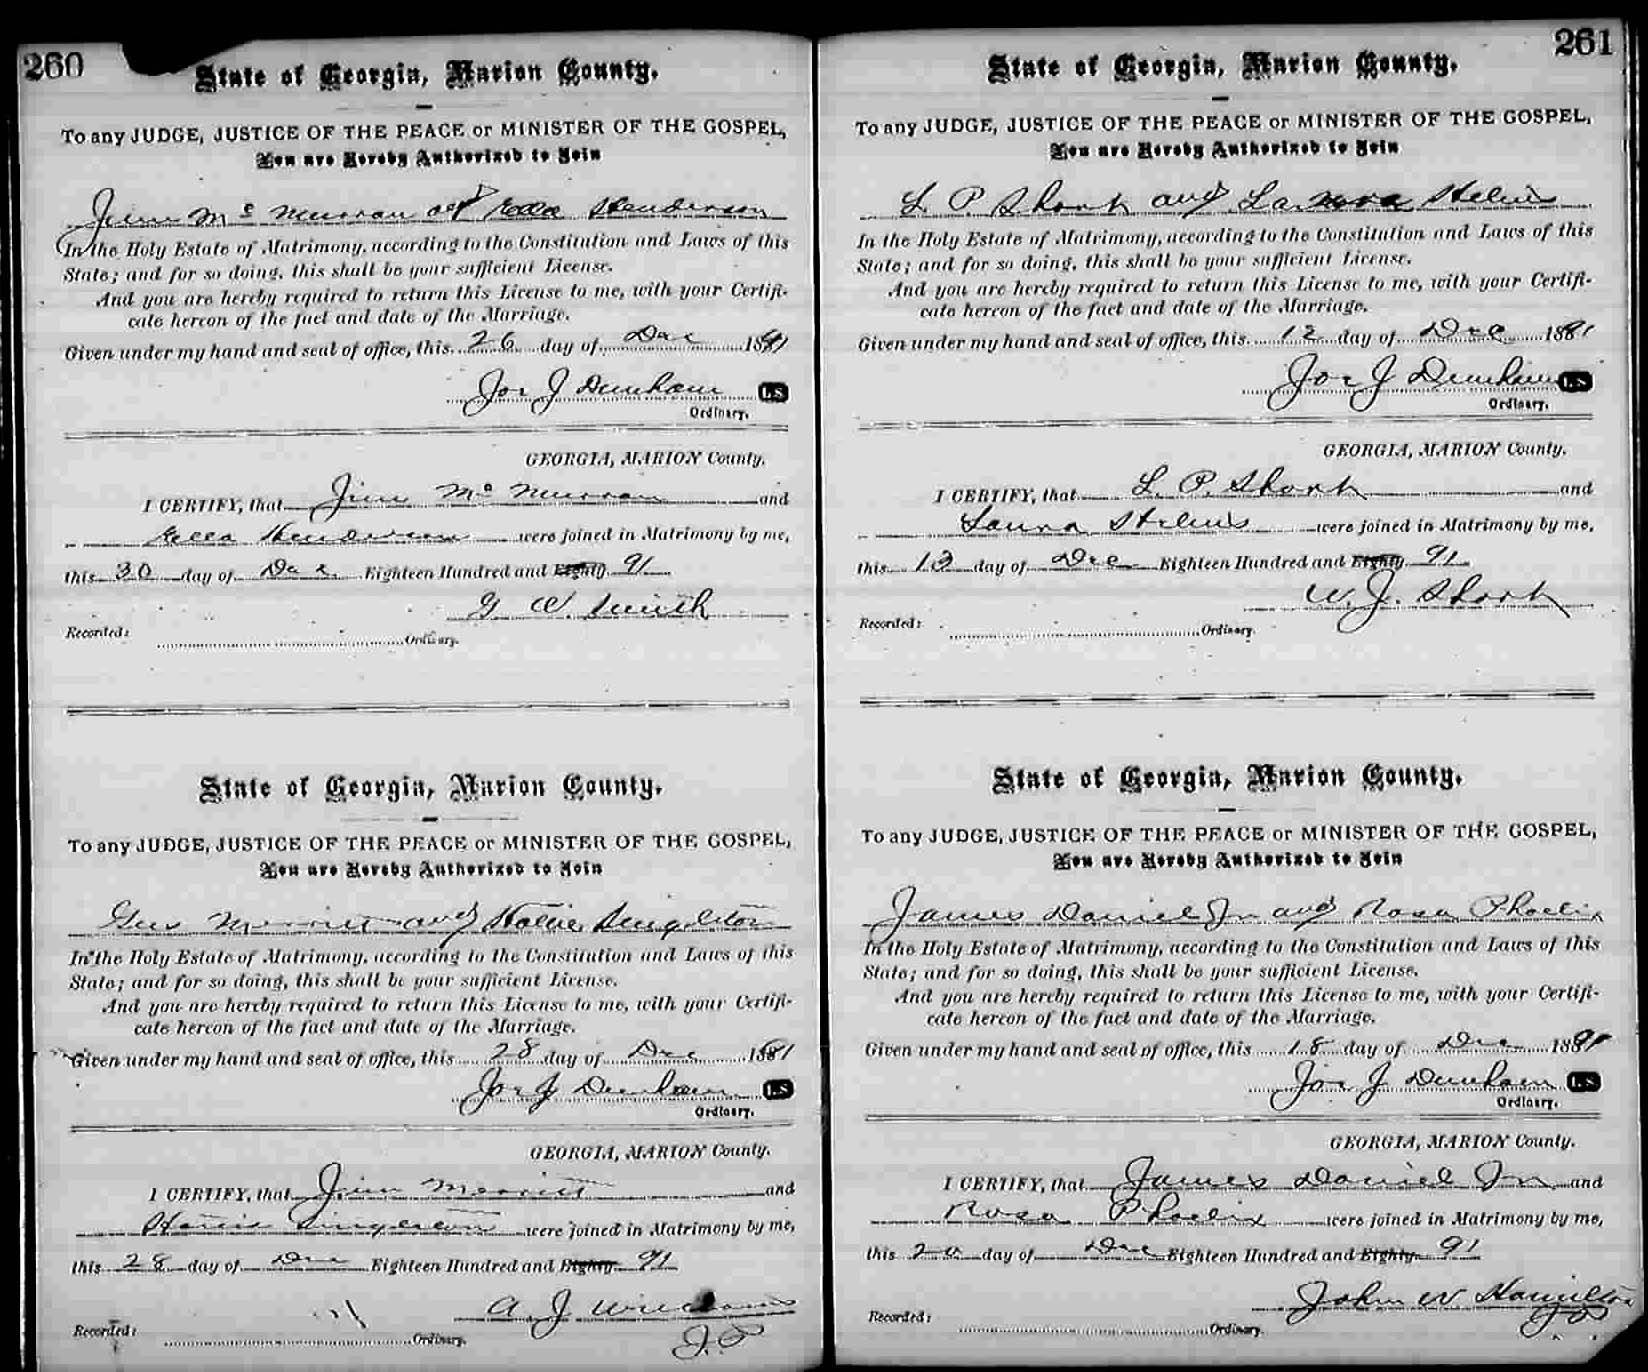 260
State of Georgia, Marion County.
To any JUDGE, JUSTICE OF THE PEACE or MINISTER OF THE GOSPEL,
You are Hereby Authorized to Join
Jim Mc Murran and Ella Henderson
In the Holy Estate of Matrimony, according to the Constitution and Laws of this
State; and for so doing, this shall be your sufficient License.
And you are hereby required to return this License to me, with your Certifi-
cate hereon of the fact and date of the Marriage.
Given under my hand and seal of office, this 26 day of Dec 1891
Jos J Dunham LS
Ordinary.
GEORGIA, MARION County.
I CERTIFY, that Jim Mc Murran and
Ella Henderson were joined in Matrimony by me,
this 30 day of Dec Eighteen Hundred and Eighty 91
G W Smith
Recorded:
Ordinary.
State of Georgia, Marion County.
To any JUDGE, JUSTICE OF THE PEACE or MINISTER OF THE GOSPEL,
You are Hereby Authorized to Join
Gus Merritt and Singleton
In the Holy Estate of Matrimony, according to the Constitution and Laws of this
State; and for so doing, this shall be your sufficient License.
And you are hereby required to return this License to me, with your Certifi-
cate hereon of the fact and date of the Marriage.
Given under my hand and seal of office, this 28 day of Dec 1891
Jos J Dunham LS
Ordinary.
GEORGIA, MARION County.
I CERTIFY, that Jim Merritt and
Singleton were joined in Matrimony by me,
this 28 day of Dec Eighteen Hundred and Eighty 91
A. J Williams
J. P
Recorded:
Ordinary.
261
State of Georgia, Marion County.
To any JUDGE, JUSTICE OF THE PEACE or MINISTER OF THE GOSPEL,
You are Hereby Authorized to Join
L. P. Short and
In the Holy Estate of Matrimony, according to the Constitution and Laws of this
State; and for so doing, this shall be your sufficient License.
And you are hereby required to return this License to me, with your Certifi-
cate hereon of the fact and date of the Marriage.
Given under my hand and seal of office, this 12 day of Dec 1891
Jos J Dunham LS
Ordinary.
GEORGIA, MARION County.
I CERTIFY, that L. P. Short and
Laura were joined in Matrimony by me,
this 13 day of Dec Eighteen Hundred and Eighty 91
W. J. Short
Recorded:
Ordinary.
State of Georgia, Marion County.
To any JUDGE, JUSTICE OF THE PEACE or MINISTER OF THE GOSPEL,
You are Hereby Authorized to Join
James Daniel Jr and Rosa Phoelix
In the Holy Estate of Matrimony, according to the Constitution and Laws of this
State; and for so doing, this shall be your sufficient License.
And you are hereby required to return this License to me, with your Certifi-
cate hereon of the fact and date of the Marriage.
Given under my hand and seal of office, this 18 day of Dec 1891
Jos J Dunham LS
Ordinary.
GEORGIA, MARION County.
I CERTIFY, that James Daniel Jr and
Rosa Phoelix were joined in Matrimony by me,
this 20 day of Dec Eighteen Hundred and Eighty 91
John W Hamilton
JP
Recorded:
Ordinary.